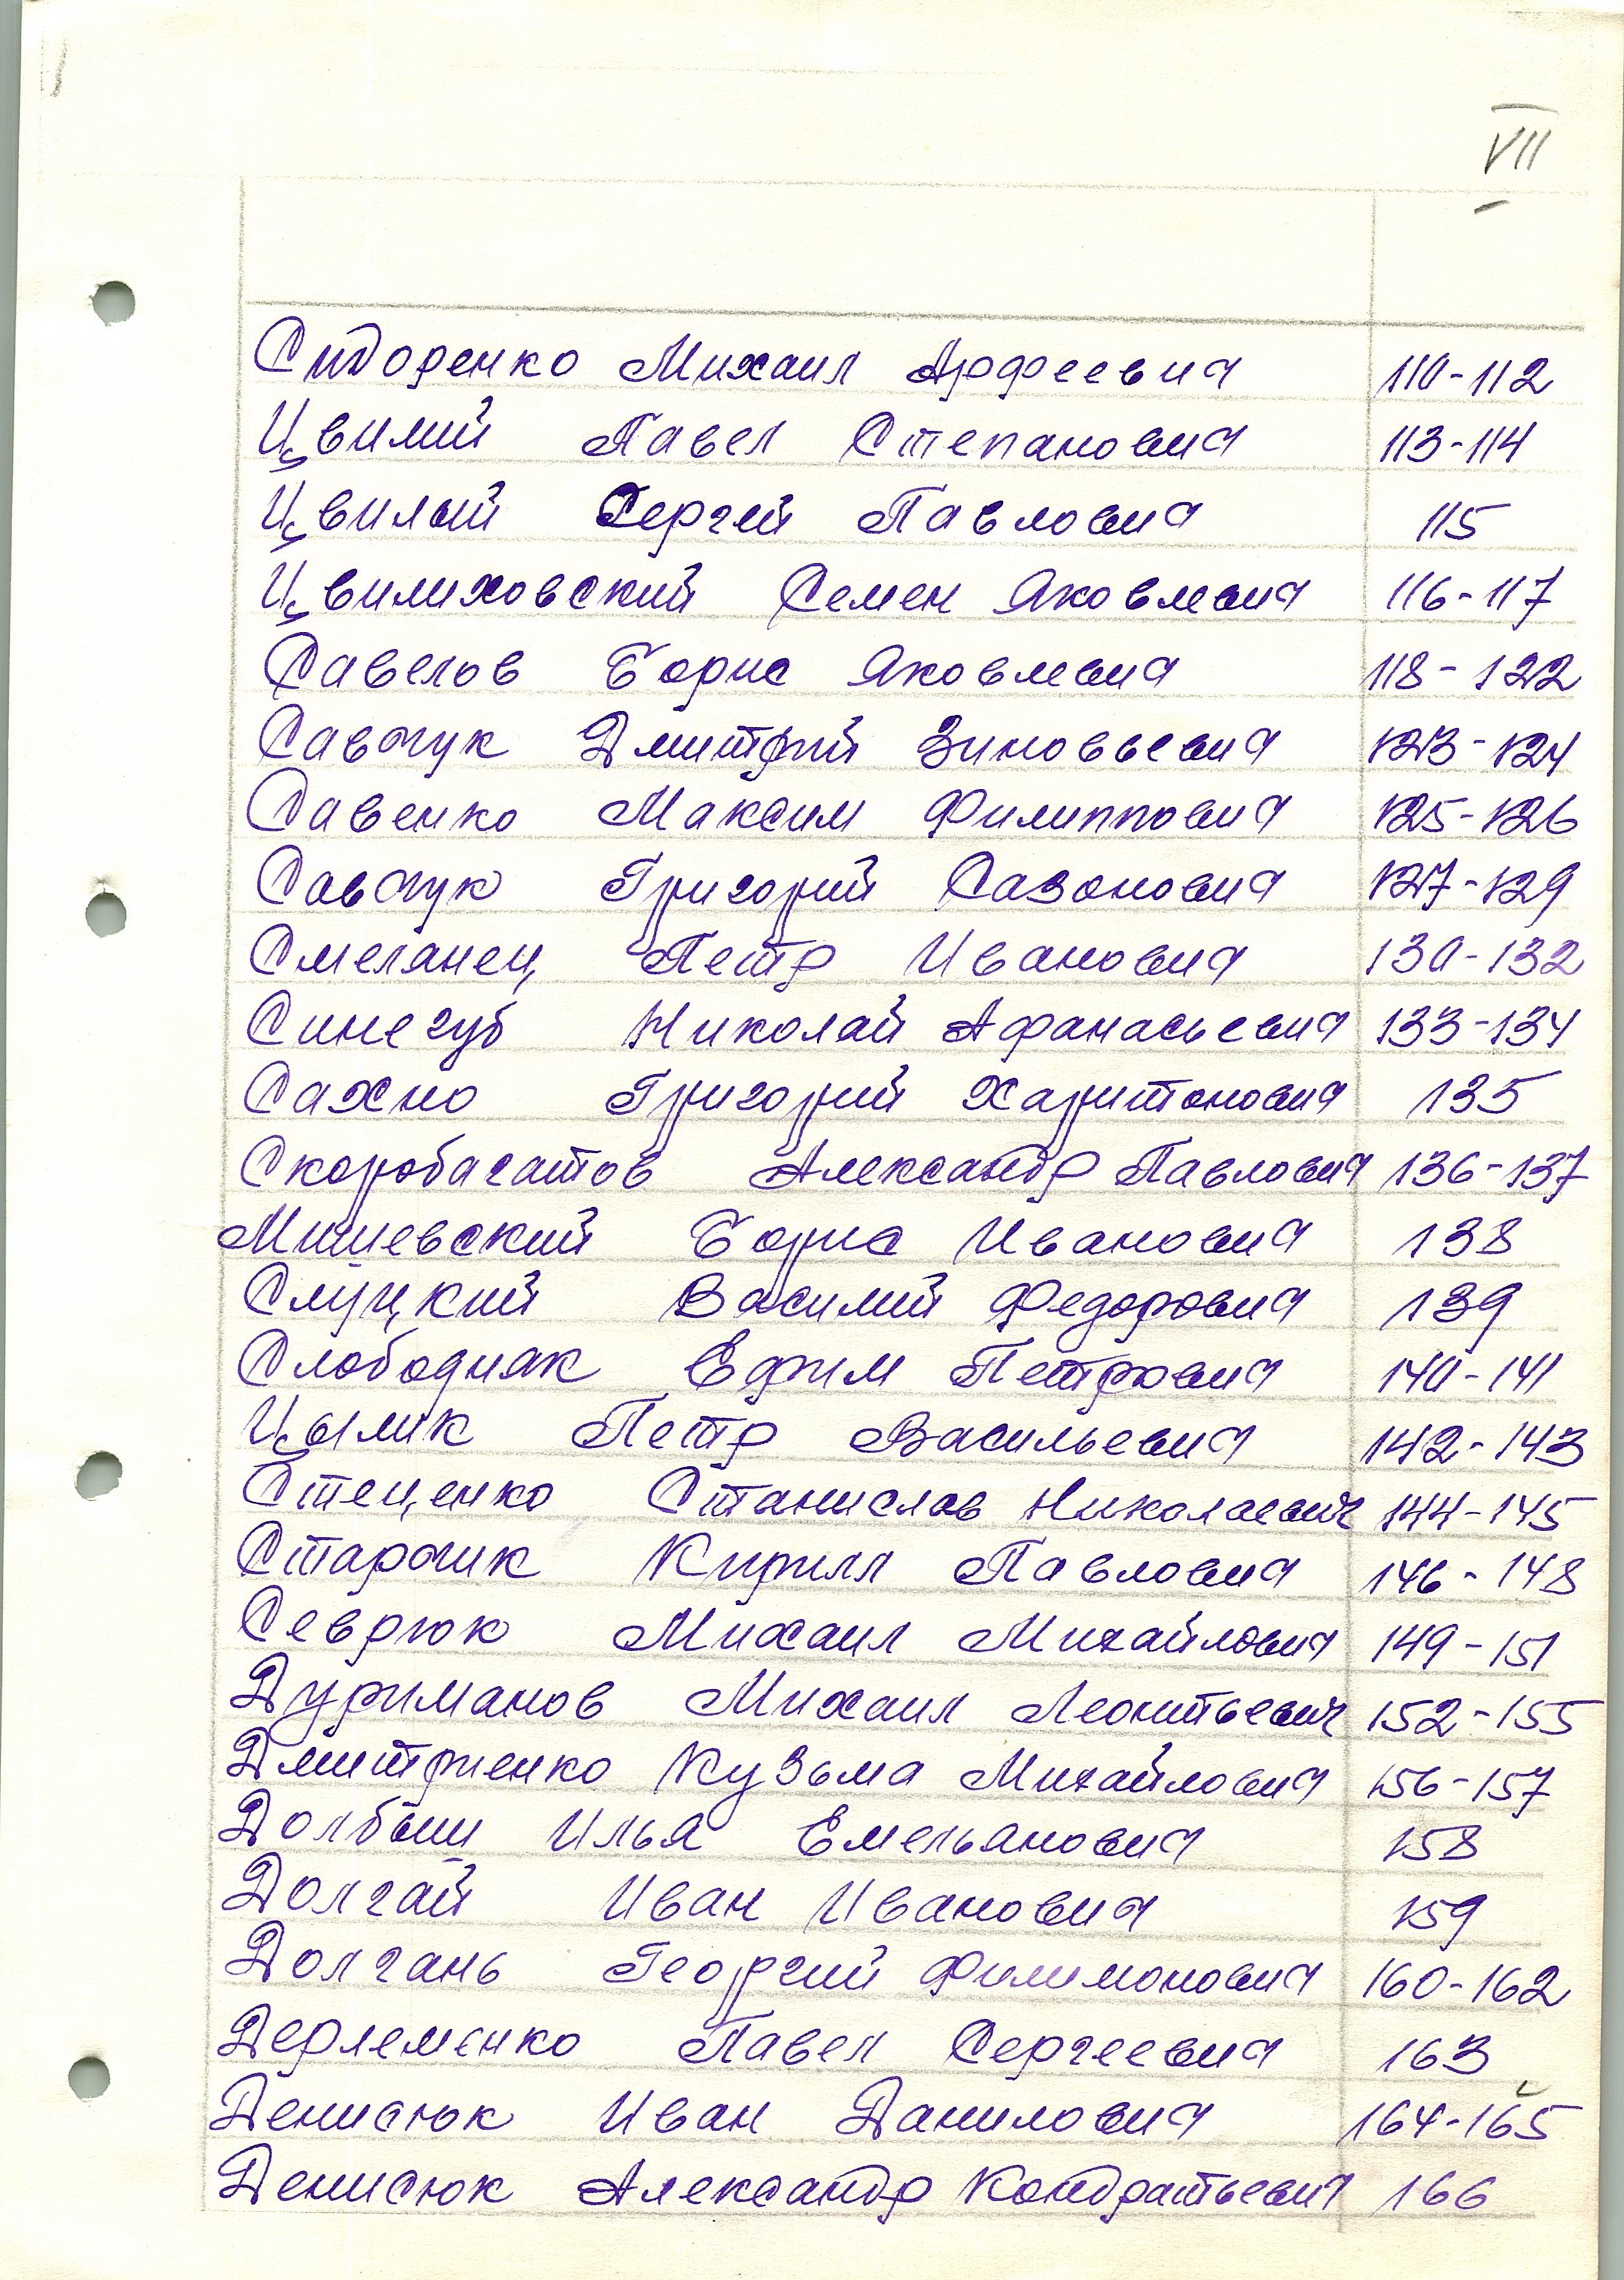 VII
Сидоренко Михаил Арфеевич 110-112
Цвилий Павел Степанович 113-114
Цвилый Сергей Павлович 115
Цвилиховский Семен Яковлевич 116-117
Савелов Борис Яковлевич 118-122
Савчук Дмитрий Зиновьевич 123-124
Савенко Максим Филиппович 125-126
Савчук Григорий Сазонович 127-129
Смелянец Петр Иванович 130-132
Синегуб Николай Афанасьевич 133-134
Сахно Григорий Харитонович 135
Скоробагатов Александр Павлович 136-137
Мишевский Борис Иванович 138
Слуцкий Василий Федорович 139
Слободняк Ефим Петрович 140-141
Цылик Петр Васильевич 142-143
Стеценко Станислав Николаевич 144-145
Старчик Кирилл Павлович 146-148
Севрюк Михаил Михайлович 149-151
Дурманов Михаил Леонтьевич 152-155
Дмитриенко Кузьма Михайлович 156-157
Долбыш Илья Емельянович 158
Долгай Иван Иванович 159
Долгань Георгий Филимонович 160-162
Дерлеменко Павел Сергеевич 163
Денисюк Иван Данилович 164-165
Денисюк Александр Кондратьевич 166